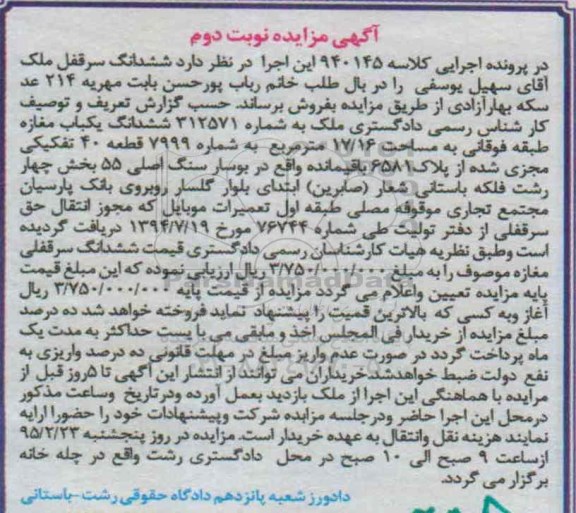 آگهی مزایده نوبت دوم
در پرونده اجرایی کلاسه ۹۴۰۱۴۵ این اجرا در نظر دارد ششدانگ سرقفل ملک
آقای سهیل یوسفی را در بال طلب خانم رباب پورحسن بابت مهریه ۲۱۴ عد
سکه بهارآزادی از طریق مزایده بفروش برساند. حسب گزارش تعریف و توصیف
کار شناس رسمی دادگستری ملک به شماره ۳۱۲۵۷۱ ششدانگ یکباب مغازه
طبقه فوقانی به مساحت ۱۷/۱۶ مترمربع به شماره ۷۹۹۹ قطعه ۴۰ تفکیکی
مجزی شده از پلاک ۶۵۸۱ باقیمانده واقع در بوسار سنگ اصلی ۵۵ بخش چهار
رشت فلکه باستانی شعار (صابرین) ابتدای بلوار گلسار روبروی بانک پارسیان
مجتمع تجاری موقوفه مصلی طبقه اول تعمیرات موبایل که مجوز انتقال حق
سرقفلی از دفتر تولیت طی شماره ۷۶۷۴۴ مورخ ۱۳۹۴/۷/۱۹ دریافت گردیده
است وطبق نظریه هیات کارشناسان رسمی دادگستری قیمت ششدانگ سرقفلی
مغازه موصوف را به مبلغ ۳/۷۵۰/۰۰۰/۰۰۰ ریال ارزیابی نموده که این مبلغ قیمت
پایه مزایده تعیین واعلام می گردد مزایده از قیمت پایه ۳/۷۵۰/۰۰۰/۰۰۰ ریال
آغاز وبه کسی که بالاترین قمیت را پیشنهاد نماید فروخته خواهد شد ده درصد
مبلغ مزایده از خریدار فی المجلس اخذ و مابقی می با یست حداکثر به مدت یک
ماه پرداخت گردد در صورت عدم واریز مبلغ در مهلت قانونی ده درصد واریزی به
نفع دولت ضبط خواهدشدخریداران می توانند از انتشار این آگهی تا ۵روز قبل از
مرایده با هماهنگی این اجرا از ملک بازدید بعمل آورده ودر تاریخ وساعت مذکور
درمحل این اجرا حاضر ودرجلسه مزایده شرکت وپیشنهادات خود را حضورا ارایه
نمایند هزینه نقل وانتقال به عهده خریدار است. مزایده در روز پنجشنبه ۹۵/۲/۲۳
ازساعت ۹ صبح الی ۱۰ صبح در محل دادگستری رشت واقع در چله خانه
برگزار می گردد.
دادورز شعبه پانزدهم دادگاه حقوقی رشت-باستانی